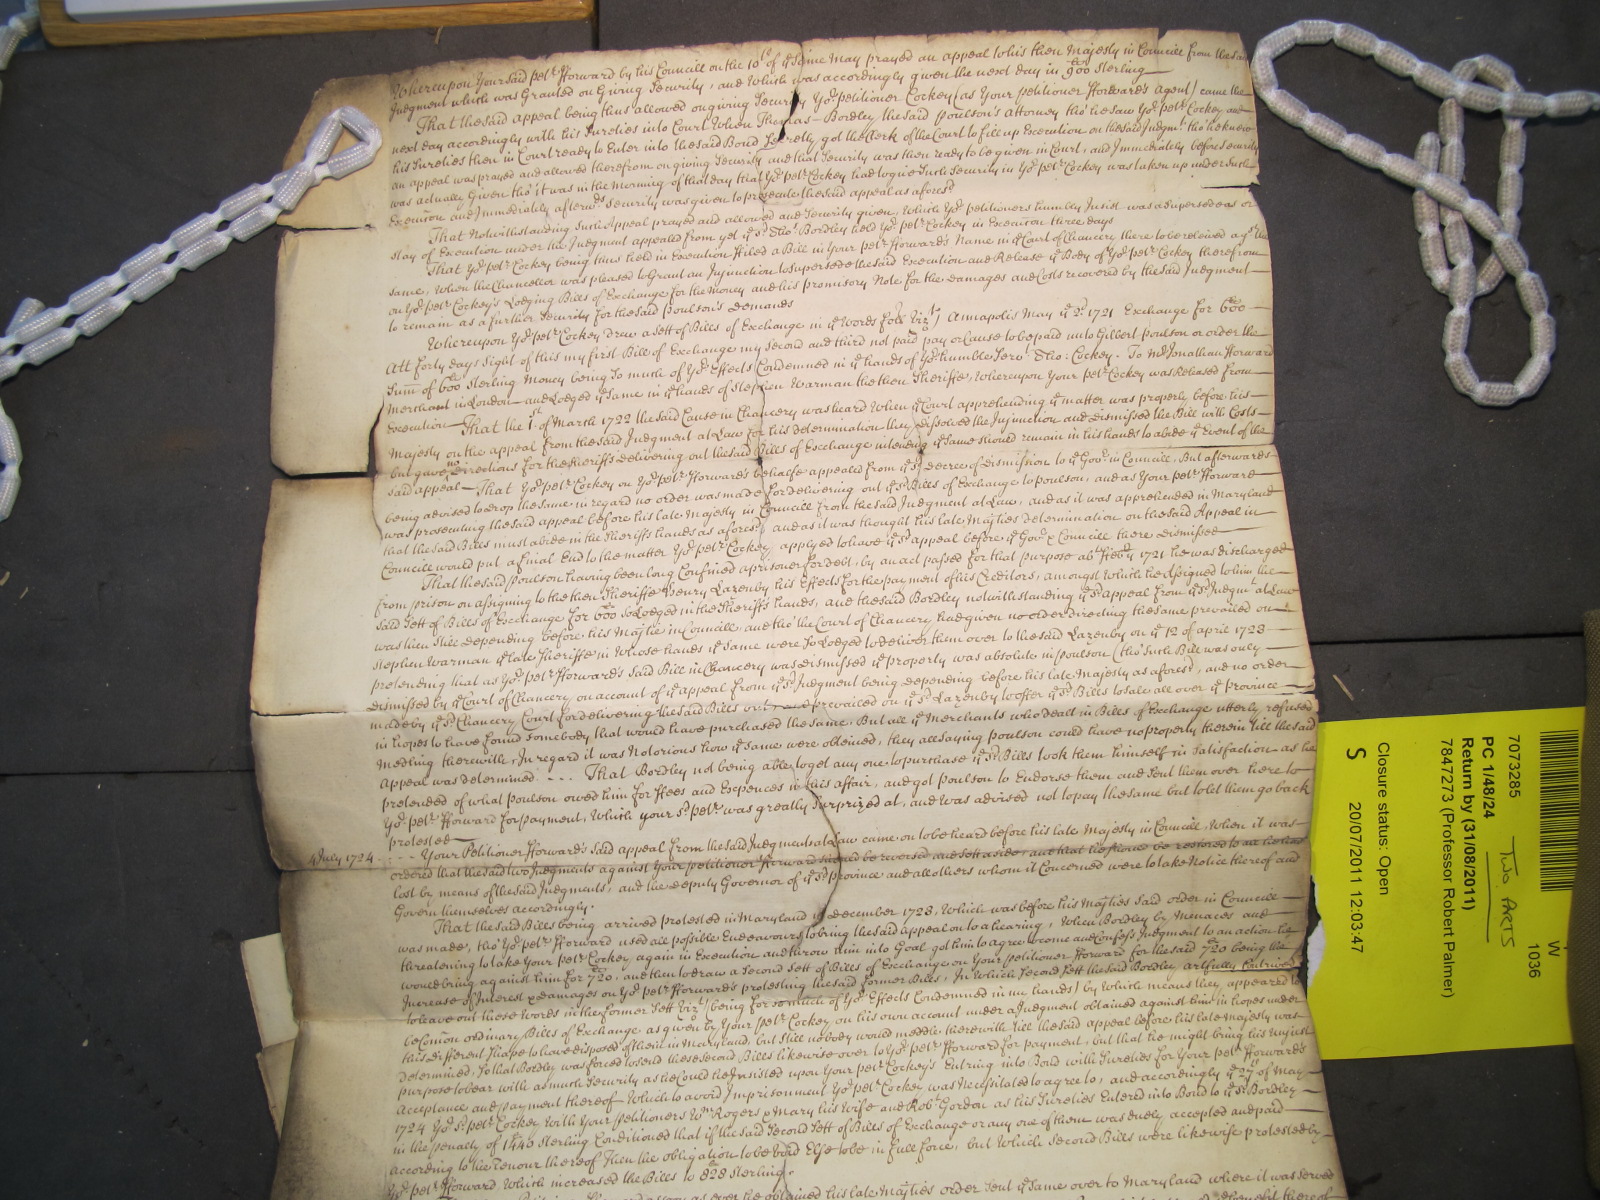 Whereupon Your said petr. Fforward by his Councill on the 10th of ye same May prayed an appeal to his then Majesty in Councill from the said
Judgment which was Granted on Giving Security, and Which was accordingly given the next day in 900 sterling
That the said appeal being thus allowed on giving Security Yor. petitioner Cockey (as Your petitioner Fforward's Agent) came the
next day accordingly with his Sureties into Court When Thomas Bordley the said Poulson's Attorney tho' he saw Yor. petr. Cockey and
his Sureties then in Court ready to Enter into the said Bond Secretly got the Clerk of the Court to fill up Execution on the said Judgmt. tho' he knew
an appeal was prayed and allowed therefrom on giving Security and that Security was then ready to be given in Court, and Immediately before security
was actually Given tho' it was in the Morning of that day that Yor. petr. Cockey had to give Such Security in Yor. petr. Cockey was taken up under Such
Execution and Immediately afterwds. Security was given to prosecute the said appeal as aforesd.
That Notwithstanding Such Appeal prayed and allowed and Security given, Which Yor. petitioners humbly Insist was a Supersedeas or
stay of Execution under the Judgment appealed from yet ye sd. Thos. Bordley held Yor. petr. Cockey in Execution three days
That Yor. petr. Cockey being thus held in Execution ffiled a Bill in Your petr. Fforward's Name in ye Court of Chancery there to be relieved agst. the
same, When the Chancellor was pleased to Grant an Injunction to Supersede the said Execution and Release ye Body of Yor. petr. Cockey therefrom
on Yor. petr. Cockey's Lodging Bills of Exchange for the Money and his promisory Note for the Damages and Costs recovered by the said Judgment
to remain as a further Security for the said Poulson's demands
Whereupon Yor. petr. Cockey drew a Sett of Bills of Exchange in ye Words foll. vizt.) Annapolis May ye 2d. 1721 Exchange for 600
Att forty days Sight of this my first Bill of Exchange my Second and third not paid pay or Cause to be paid unto Gilbert Poulson or order the
Sum of 600 Sterling Money being So much of Yor. Effects Condemned in ye hands of Yor. humble Servt. Tho: Cockey. To Mr. Jonathan Fforward
Merchant in London and Lodged ye Same in ye hands of Stephen Warman the then Sheriffe, Whereupon Your petr. Cockey was Released from
Execution
That the 1st. of March 1722 the said Cause in Chancery was heard When ye Court apprehending ye matter was properly before his
Majesty on the appeal from the said Judgment at Law for his determination they dissolved the Injunction and dismissed the Bill with Costs
but gave no directions for the Sheriffs delivering out the said Bills of Exchange intending ye Same should remain in his hands to abide ye Event of the
said appeal That Yor. petr. Cockey on Yor. petr. Fforward's behalfe appealed from ye sd. decree of dismission to ye Govr. in Councill, But afterwards
being advised to drop the same in regard no order was made for delivering out ye sd. Bills of Exchange to Poulson, and as Your petr. Fforward
was prosecuting the said appeal before his late Majesty in Councill from the said Judgment at Law, and as it was apprehended in Maryland
that the said Bills must abide in the Sheriffs hands as aforesd. and as it was thought his late Majties Determination on the said Appeal in
Councill would put a final End to the matter Yor. petr. Cockey applyed to have ye sd. appeal before ye Govr. & Councill there Dismissed
That the said Poulson having been long Confined a prisoner for debt, by an act passed for that purpose abt. Feb. 1721 he was Discharged
from prison on assigning to the then Sheriffe Henry Lazenby his Effects for the payment of his Creditors, amongst Which he Assigned to him the
said Sett of Bills of Exchange for 600 so Lodged in the Sheriff's hands, and the said Bordley notwithstanding ye sd. appeal from ye sd. Judgmt. at Law
was then Still depending before his Majtie in Councill, and tho' the Court of Chancery had given no order directing the same prevailed on
Stephen Warman ye late Sheriffe in Whose hands ye same were So Lodged to deliver them over to the said Lazenby on ye 12 of april 1723
pretending that as Yor. petr. Fforward's Said Bill in Chancery was dismissed ye property was absolute in Poulson (tho' Such Bill was only
dismissed by ye Court of Chancery on account of ye appeal from ye sd. Judgment being depending before his late Majesty as aforesd., and no order
made by ye sd. Chancery Court for delivering the said Bills out and prevailed on ye sd. Lazenby to offer ye sd. Bills to Sale all over ye province
in hopes to have found Somebody that would have purchased the same, But all ye Merchants who dealt in Bills of Exchange utterly refused
Medling therewith, In regard it was Notorious how ye same were obtained, they all saying Poulson could have no property therein till the said
Appeal was determined That Bordley not being able to get any one to purchase ye sd. Bills took them himself in Satisfaction as he
pretended of what Poulson owed him for Ffees and Expences in this affair, and got Poulson to Endorse them and Sent them over here to
Yor. petr. Fforward for payment, Which your sd. petr. was greatly Surprized at, and was advised not to pay the same but to let them go back
protested
4 July 1724 Your Petitioner Fforward's said appeal from the said Judgment at Law came on to be heard before his late Majesty in Councill, When it was
ordered that the said two Judgments against Your petitioner Fforward should be reversed and sett aside, and that he should be restored to all he had
lost by means of the said Judgments, and the deputy Governor of ye sd. province and all others whom it Concerned were to take Notice thereof and
Govern themselves accordingly.
That the said Bills being arrived protested in Maryland in december 1723, Which was before his Majties said order in Councill
was made, tho' Yor. petr. Fforward used all possible Endeavours to bring the said Appeal on to a hearing, When Bordley by Menaces and
threatening to take Your petr. Cockey again in Execution and throw him into Goal got him to agree to come and Confess Judgment to an action he
would bring against him for 720, and then to draw a Second Sett of Bills of Exchange on Your petitioner Fforward for the said 720 being the
Increase of Interest & damages on Yor. petr. Fforward's protesting the said former Bills, In Which Second Sett the said Bordley artfully Contrived
to leave out these Words in the former Sett vizt. (being for so much of Yor. Effects Condemned in my hands) by Which means they appeared to
be Comon ordinary Bills of Exchange as given by Your petr. Cockey on his own account under a Judgment obtained against him in hopes under
this different Shape to have disposed of them in Maryland, but Still nobody would meddle therewith till the said appeal before his late Majesty was
determined, So that Bordley was forced to send these Second Bills likewise over to Yor. petr. Fforward for payment, but that he might bring his Unjust
purpose to bear with as much Security as he Could he Insisted upon Your petr. Cockey's Entring into Bond with Sureties for Your petr. Fforward's
Acceptance and payment thereof Which to avoid Imprisonment Yor. petr. Cockey was Necessitated to agree to, and accordingly ye 27th of May
1724 Yor. sd. petr. Cockey with Your petitioners Wm. Rogers & Mary his Wife and Robt. Gordon as his Sureties Entered into Bond to ye sd. Bordley
in the penalty of 1440 Sterling Conditioned that if the said Second Sett of Bills of Exchange or any one of them was duely accepted and paid
according to the Tenour thereof Then the obligation to be Void Else to be in full force, but Which Second Bills were likewise protested by
Yor. petr. Fforward, Which increased the Bills to 828 Sterling.
as soon as ever he obtained his late Majties order Sent ye same over to Maryland where it was served
7073285
PC 1/48/24
Return by (31/08/2011)
7847273 (Professor Robert Palmer)
Closure status: Open
S 20/07/2011 12:03:47
W
1036
Two PARTS